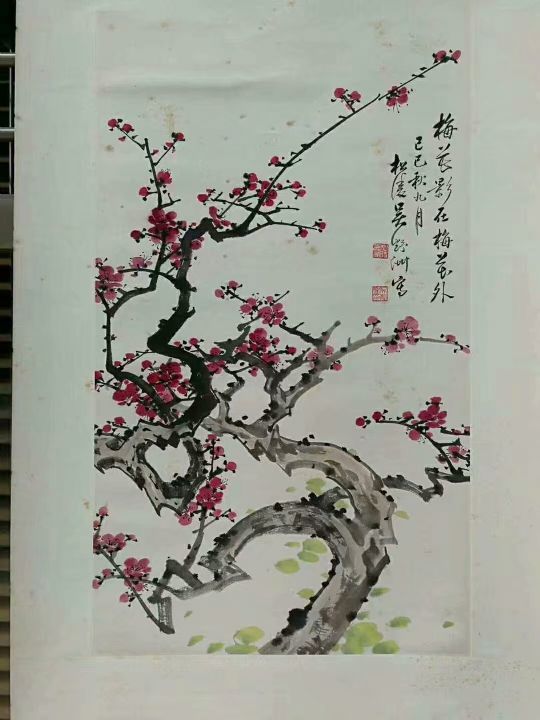 梅花影在梅花外
己巳秋九月
松濤吴
洲寫